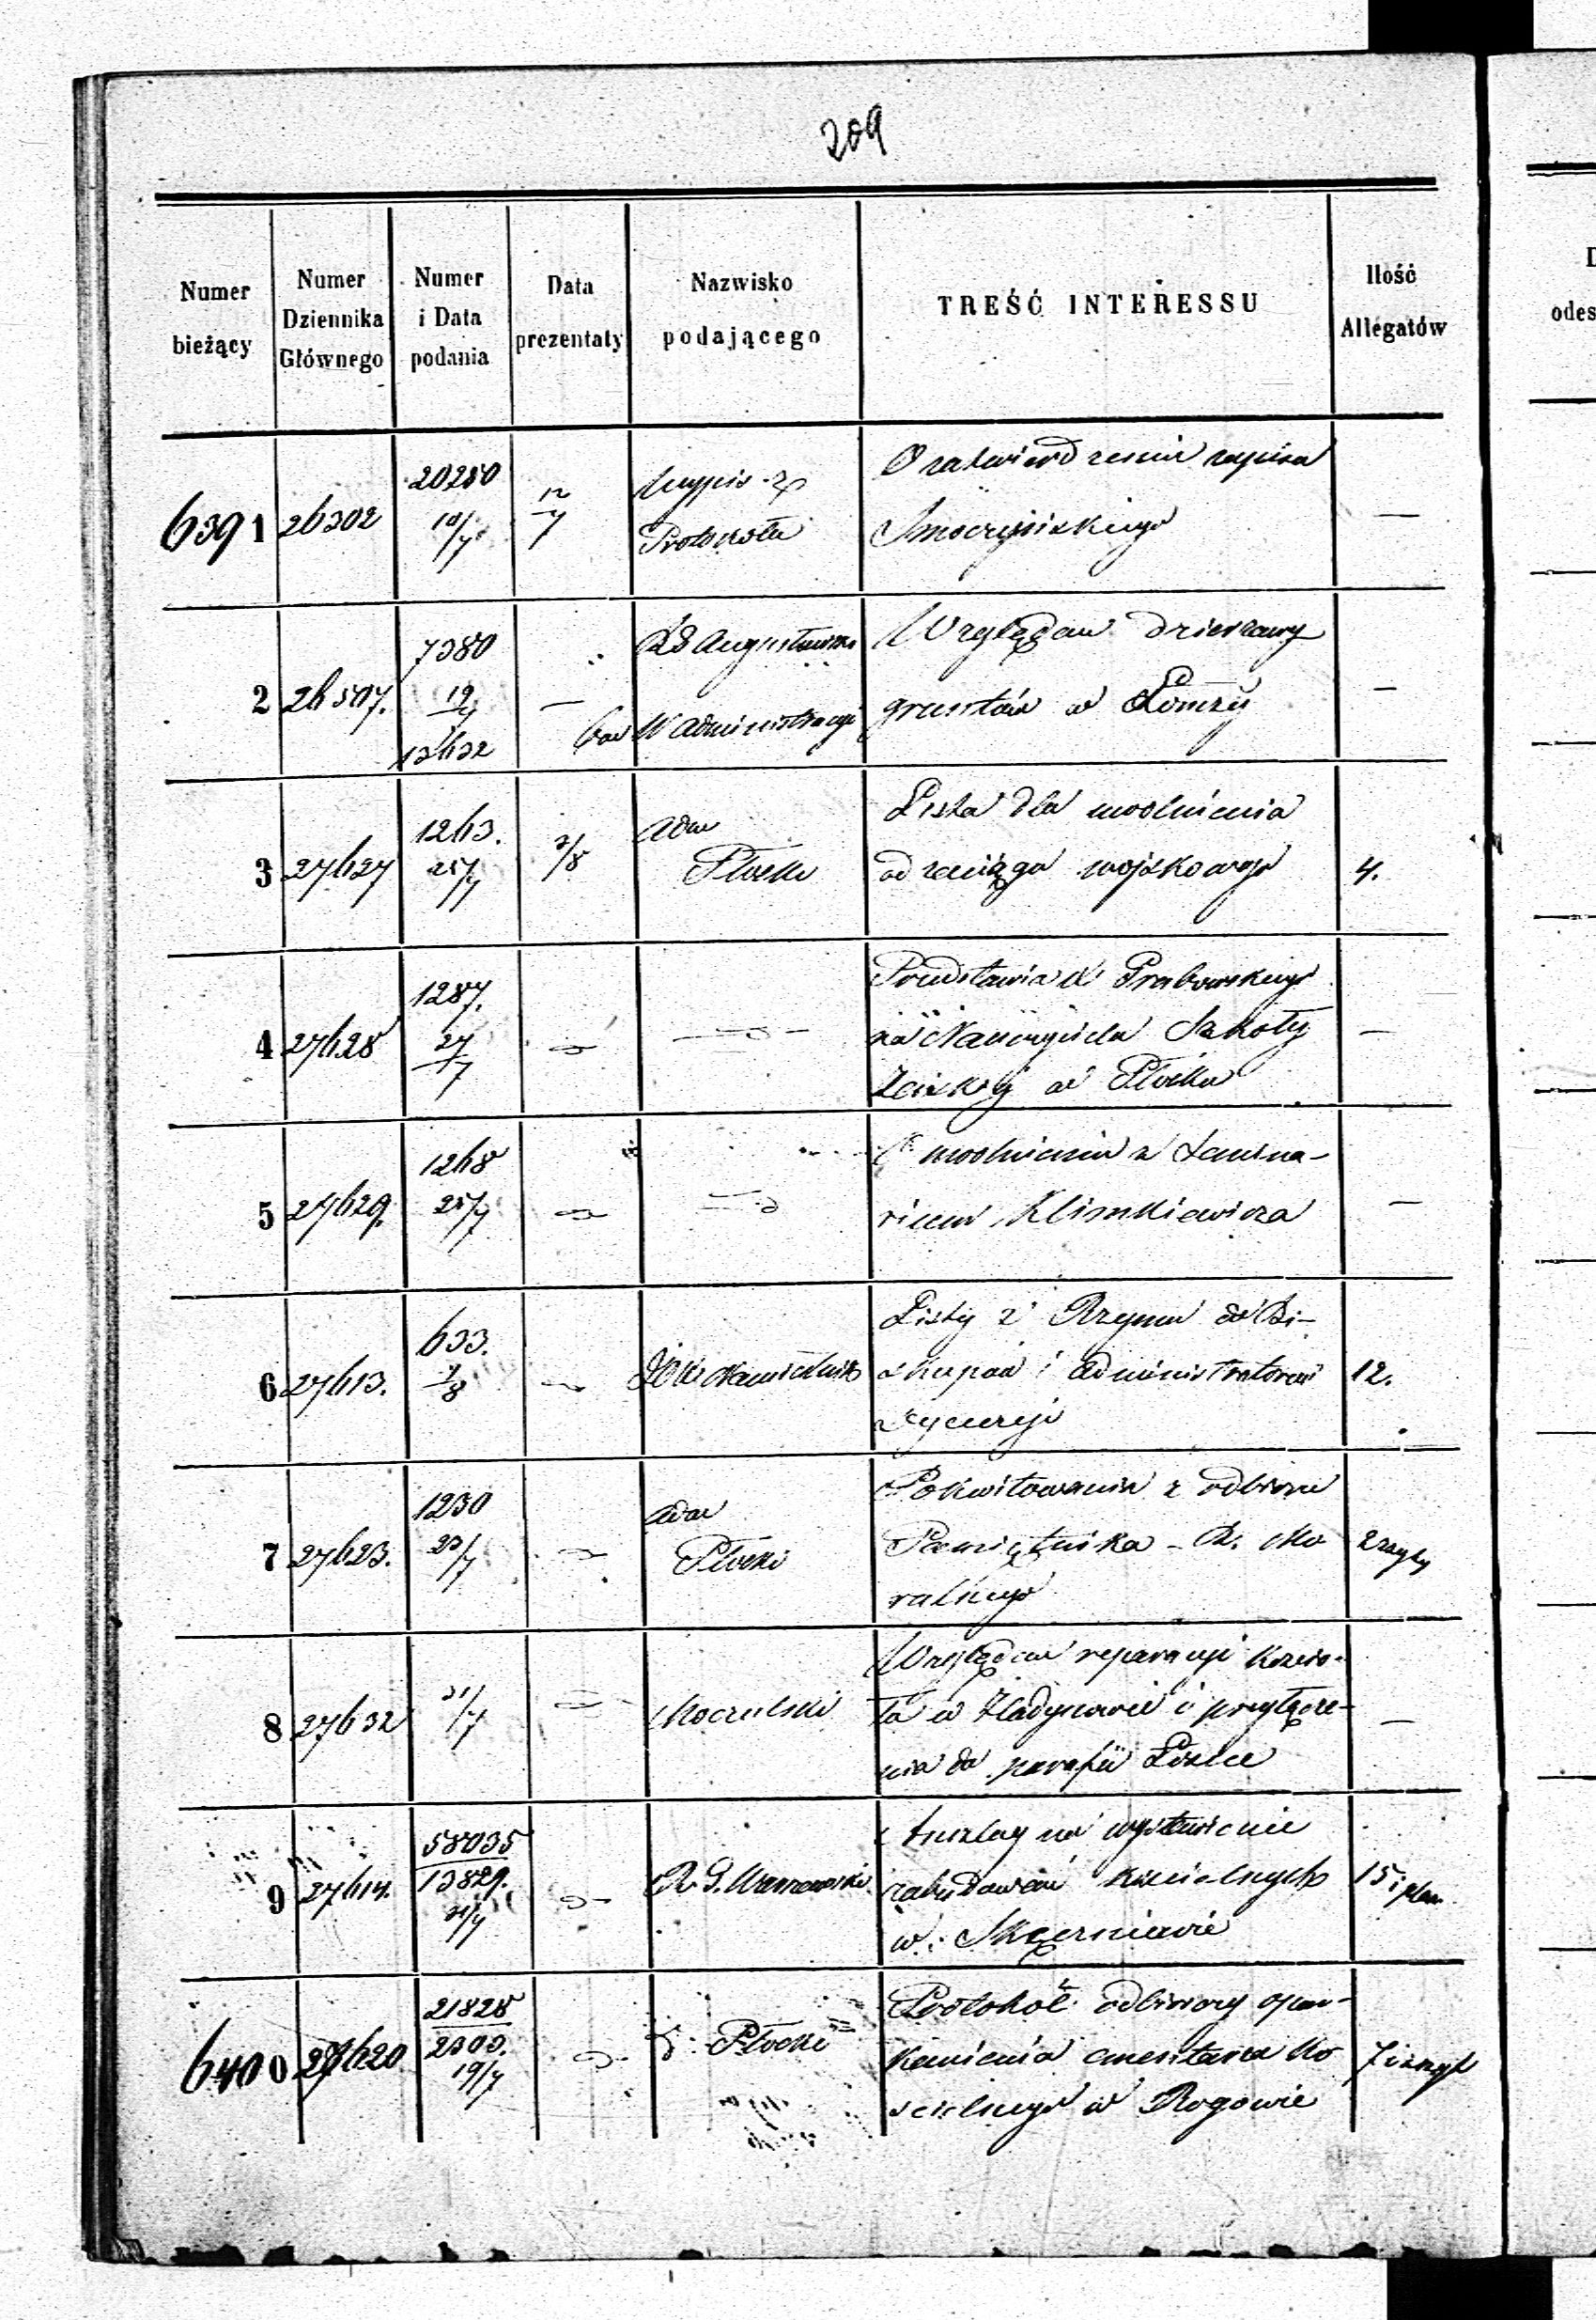 209
Numer bieżący
Numer Dziennika Głównego
Numer i Data podania
Data prezentaty
Nazwisko podającego
TREŚĆ INTERESSU
Ilość Allegatów
6391 26302 20280 10/7 12/7 Wypis z Protokołu
O zatwierdzeniu zapisu
Smoczyńskiego —
2 26507. 7380 19/7 13632 — Augustowski W Administracyi
Względem dzierżawy
gruntów w Łomży —
3 27627 1263. 25/7 3/8 Adm Płocki
Lista dla uwolnienia
od zaciągu wojskowego 4.
4 27628 1287. 27/7
Przedstawia X Grabowskiego
na Nauczyciela Szkoły
żeńskiej w Płocku —
5 27629. 1268 25/7
O uwolnieniu z Semina-
rium Klimkiewicza —
6 27613. 633. 1/8
Listy z Rzymu do Bi-
skupów i Administratorów
dyecezji 12.
7 27623. 1230 23/7 Adm Płocki
Pokwitowania z odbioru
Pamiętnika R. Mo
ralnego 2 zszyty
8 27632 31/7 Moczulski
Względem reparacyi kościo-
ła w i przyłącze-
nia do parafii —
9 27614. 58035 13829. 31/7 R. G. Warszawski
Anszlag na wystawienie
zabudowań kościelnych
w Skierniewie 15 i plan
6400 27620 21828 2303. 19/7 Płocki
Protokół odbiorczy opar-
kanienia cmentarza Ko
scielnego w Rogowie 7